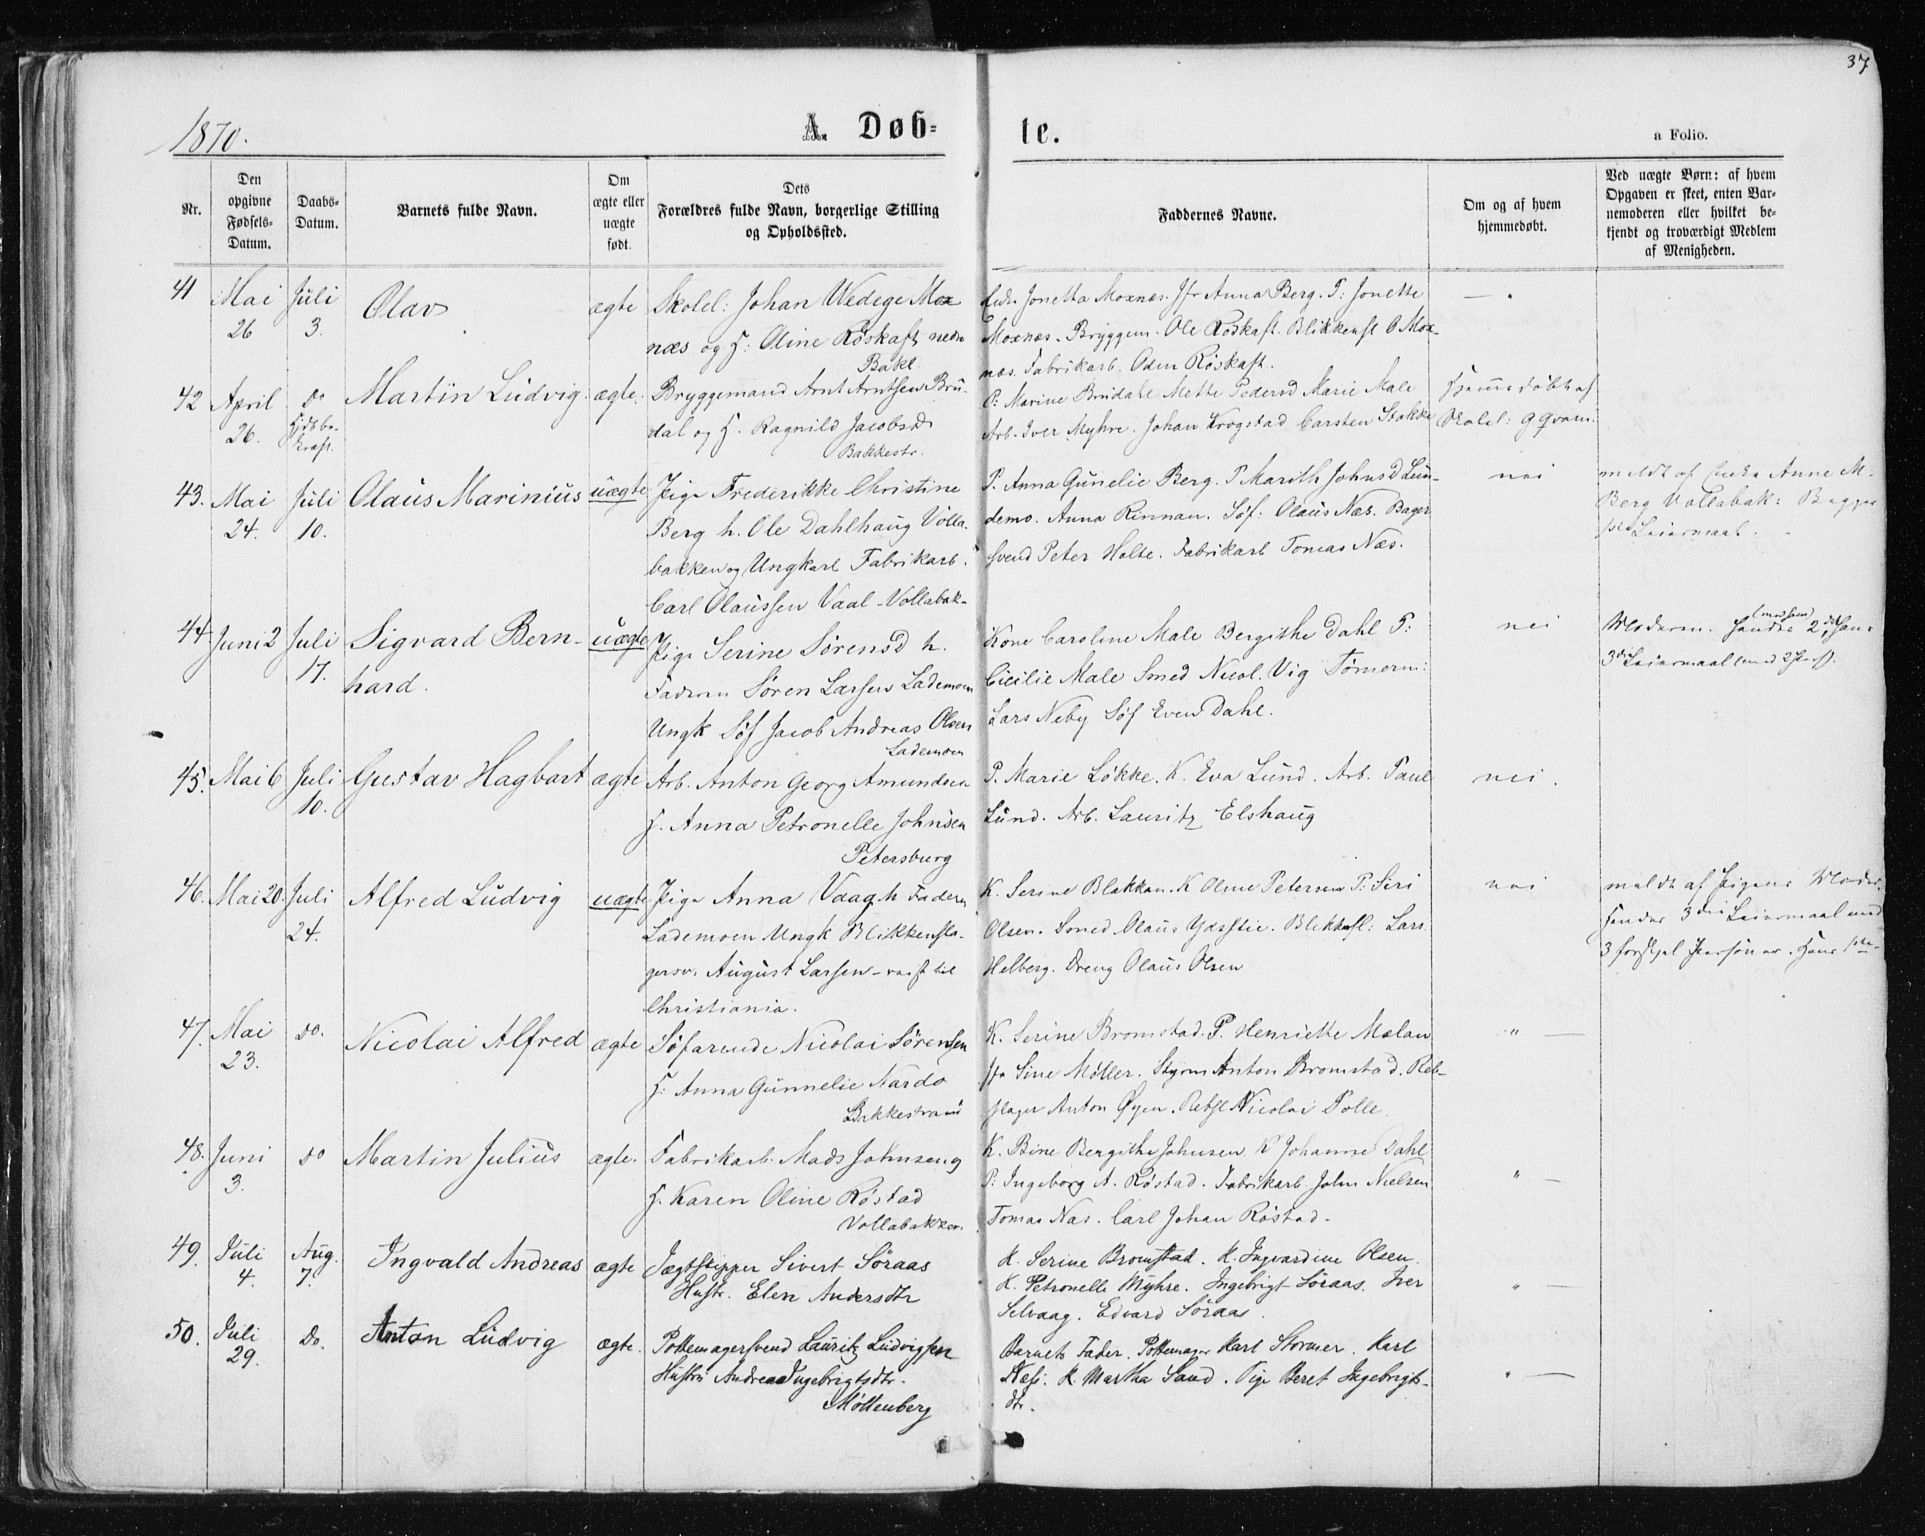 37
1870.
A. Døb-
te.
a Folio.
Nr.
Den opgivne Fødsels-Datum.
Daabs-Datum.
Barnets fulde Navn.
Om ægte eller uægte født.
Dets Forældres fulde Navn, borgerlige Stilling og Opholdssted.
Faddernes Navne.
Om og af hvem hjemmedøbt.
Ved uægte Børn: af hvem Opgaven er skeet, enten Barnemoderen eller hvilket bekjendt og troværdigt Medlem af Menigheden.
41 Mai 26 Juli 3. Olav ægte
Skolel: Johan Wedege Mox
næs og H: Oline Røskaft nedre
Bakl
Jonetta Moxnæs. Jfr Anna Berg. P: Jonette
Moxnæs. Bryggem. Ole Røskaft. Blikkensl O Mox-
næs. Fabrikarb. Oden Røskaft.
42 April 26. do Martin Ludvig. ægte.
Bryggemand Arnt Arntsen Bru-
dal og H. Ragnild Jacobsd
Bakkestr.
P: Marine Brudahl Mette Pedersd Marie Male
Arb. Iver Myhre. Johan Krogstad Carsten Stokke
Hjemmedøbt af
Skolel: G Qvam.
43. Mai 24. Juli 10. Olaus Marinius uægte
Pige Frederikke Christine
Berg h. Ole Dahlhaug Volla-
bakken og Ungkarl Fabrikarb.
Carl Olaussen Vaal Vollabak-
P. Anna Gunelie Berg. P Marith Johnsd Lun-
demo. Anna Rinnan. Søf: Olaus Næs. Bager
svend Peter Holte. Fabrikarb Tomas Næs.
nei
meldt af Anne M.
Berg Vollabak: Begges
1ste Leiermaal.
44. Juni 2 Juli 17. Sigvard Bern-
hard. uægte
Pige Serine Sørensd h.
Faderen Søren Larsen Lademoen
Ungk Søf Jacob Andreas Olsen
Lademoen
Kone Caroline Male Bergithe Dahl P:
Cicilie Male Smed Nicol. Vig Tømerm:
Lars Neby Søf Even Dahl.
nei
Moderen. Hendes 2det Han.
3die Leiermaal med 2 Pers).
45. Mai 6 Juli 10. Gustav Hagbart ægte
Arb. Anton Georg Amundsen
H. Anna Petronelle Johnsen
Petersburg
P. Marie Løkke. K. Eva Lund. Arb. Paul
Lund. Arb. Lauritz Elshaug
nei.
46. Mai 20. Juli 24. Alfred Ludvig uægte
Pige Anna Vaag h Faderen
Lademoen Ungk Blikkensla-
gersv. August Larsen - reist til
Christiania.
K. Serine Blakkan. K Oline Petersen P: Siri
Olsen. Smed Olaus Ydsstie. Blikksl: Lars
Helberg. Dreng Olaus Olsen
nei
meldt af Pigens Moder.
Hendes 3die Leiermaal med
3 forskjel Personer. Hans 1ste
47. Mai 23. do. Nicolai Alfred ægte
Søfarende Nicolai Sørensen
H: Anna Gunnelie Nardo
Bakkestrand
K. Serine Bromstad. P. Henriette Mælan
Jfr Sine Møller. Styrm Anton Bromstad. Reb-
slager Anton Øyen. Rebsl Nicolai Polle.
" —
48. Juni 3. do Martin Julius ægte.
Fabrikarb. Mads Johnsen og
H. Karen Oline Røstad
Vollabakken
K. Bine Bergithe Johnsen. K Johanne Dahl
P: Ingeborg A. Røstad. Fabrikarb John Nielsen
Tomas Næs. Carl Johan Røstad.
" —
49. Juli 4. Aug. 7. Ingvald Andreas ægte
Jægtskipper Sivert Søraas
Hustr. Elen Andersdtr
K. Serine Bromstad. K. Ingvardine Olsen.
K. Petronelle Myhre. Ingebrigt Søraas. Iver
Selvaag. Edvard Søraas.
" —
50. Juli 29. Do. Anton Ludvig ægte.
Pottemagersvend Lauritz Ludvigsen
Hustru Andrea Ingebrigtsdtr.
Møllenberg
Barnets Fader. Pottemager Karl Stormer. Karl
Næss. K. Martha Sand. Pige Beret Ingebrigts-
dtr.
" —